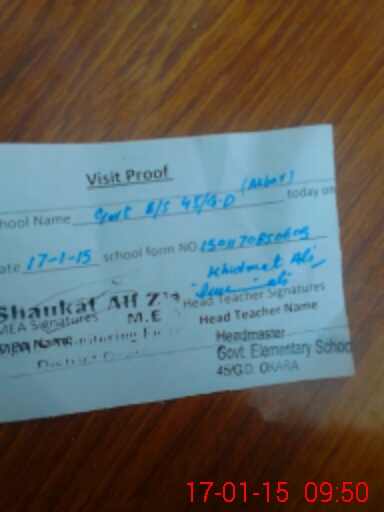 Visit Proof
hool Name Govt E/S 45/G.D (Akbar) today on
ate 17-1-15 school form NO.
Khidmat Ali
Head Teacher Signatures
Shaukat Ali
MEA Signatures M.E
Head Teacher Name
Headmaster
Govt. Elementary School
45/G.D. OKARA
17-01-15 09:50